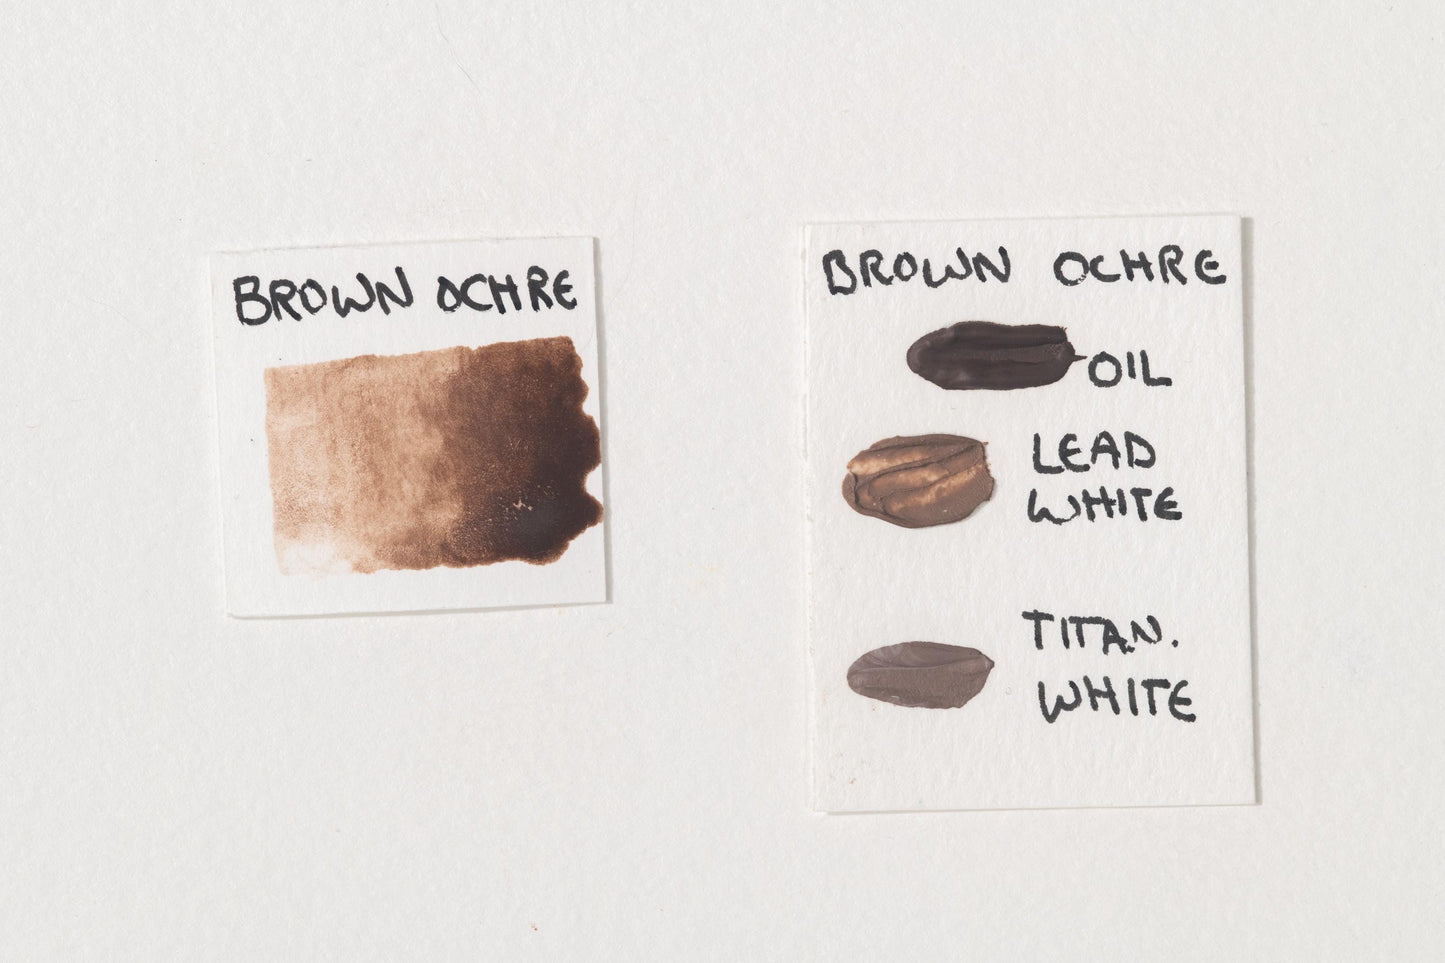 BROWN OCHRE
BROWN OCHRE
OIL
LEAD
WHITE
TITAN.
WHITE